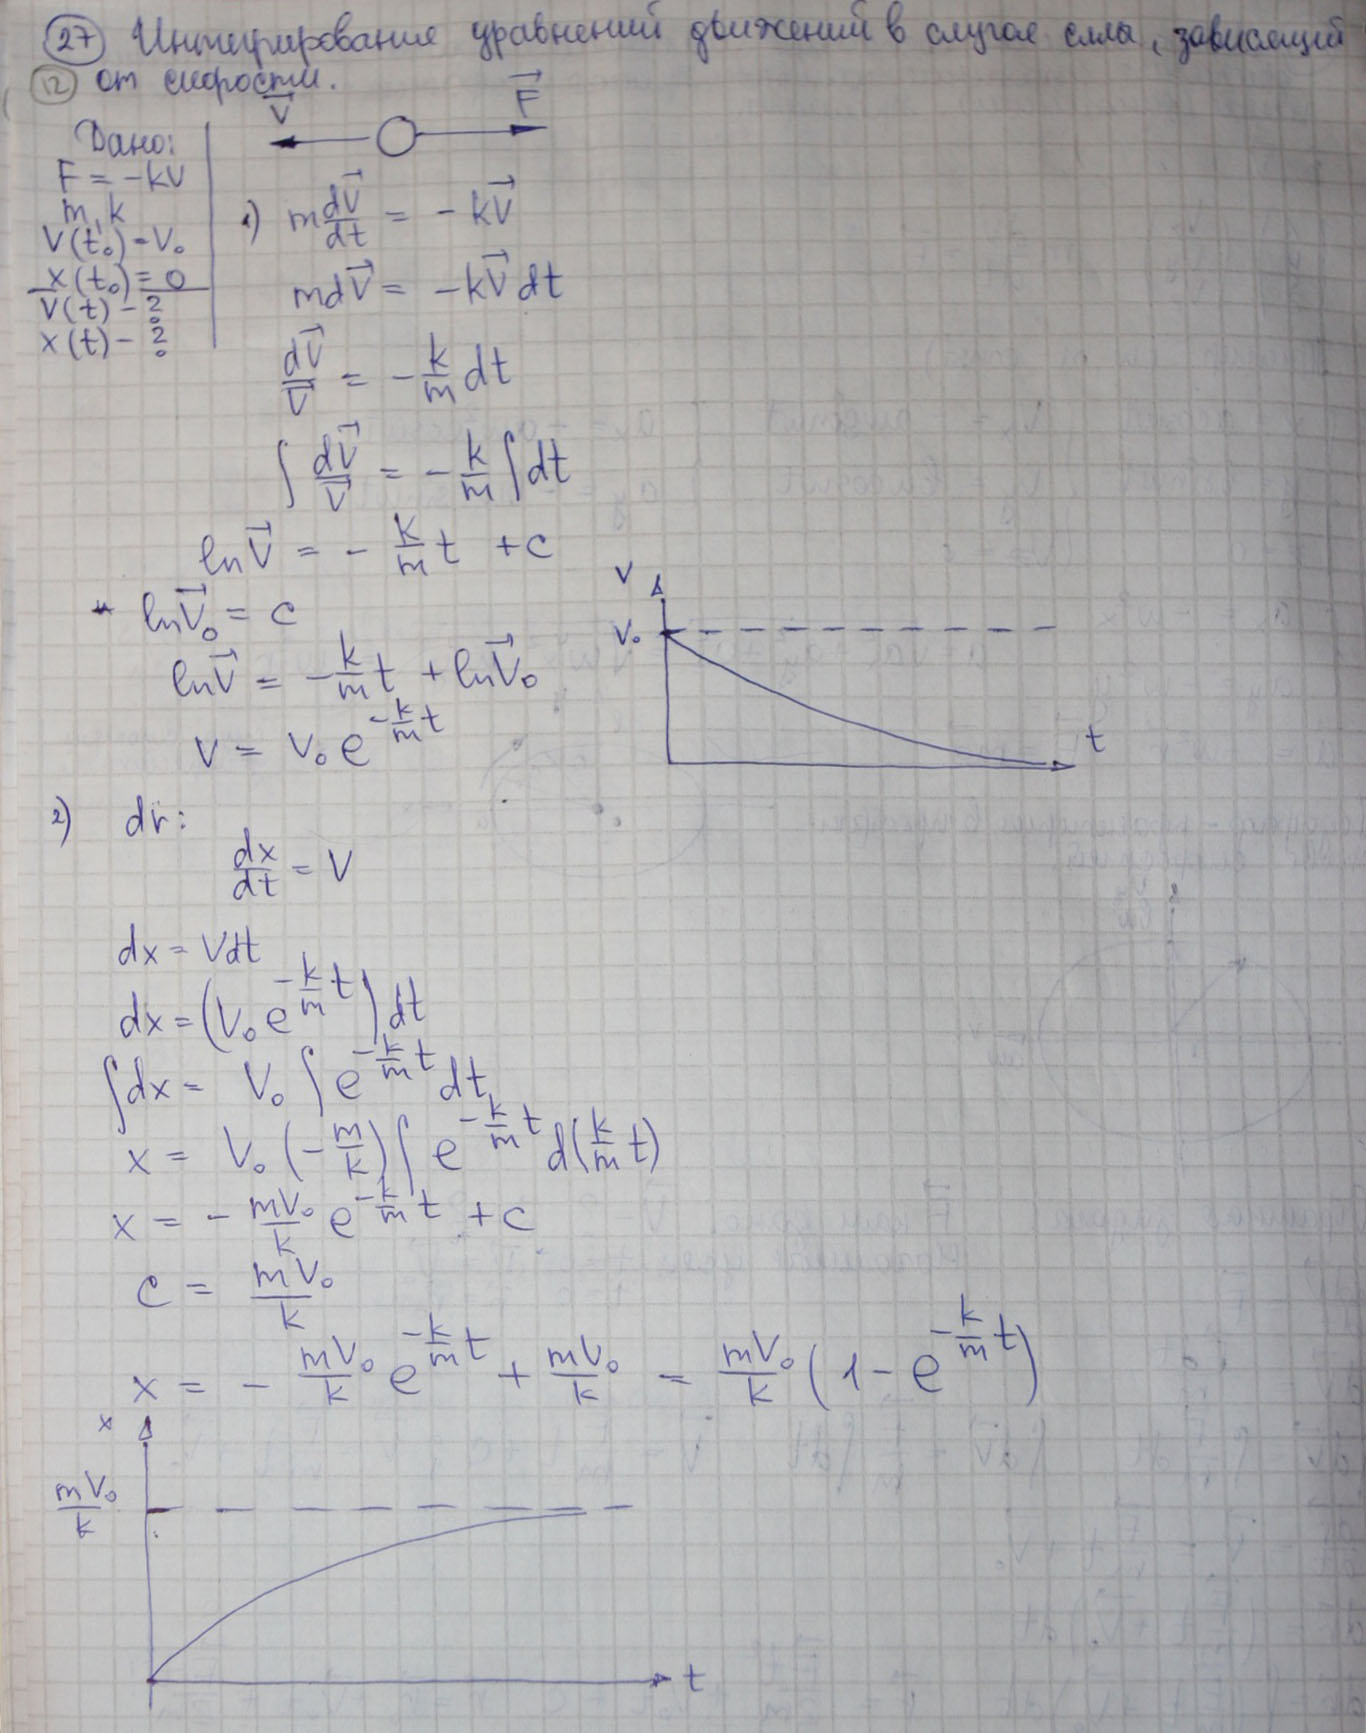 27 Интегрирование уравнений движений в случае силы, зависящий
12 от скорости.
Дано:
F = -kV
m, k
V(t₀) = V₀
x(t₀) = 0
V(t) - ?
x(t) - ?
V⃗ F⃗
1) m dV⃗/dt = -kV⃗
mdV⃗ = -kV⃗ dt
dV⃗/V⃗ = -k/m dt
∫ dV⃗/V⃗ = -k/m ∫ dt
ln V⃗ = - k/m t + c
ln V⃗₀ = c
ln V⃗ = - k/m t + ln V⃗₀
V = V₀ e^(-k/m t)
V
V₀
t
2) dr:
dx/dt = V
dx = Vdt
dx = (V₀ e^(-k/m t)) dt
∫dx = V₀ ∫ e^(-k/m t) dt
x = V₀ (-m/k) ∫ e^(-k/m t) d(k/m t)
x = - mV₀/k e^(-k/m t) + c
c = mV₀/k
x = - mV₀/k e^(-k/m t) + mV₀/k = mV₀/k (1 - e^(-k/m t))
x
mV₀/k
t